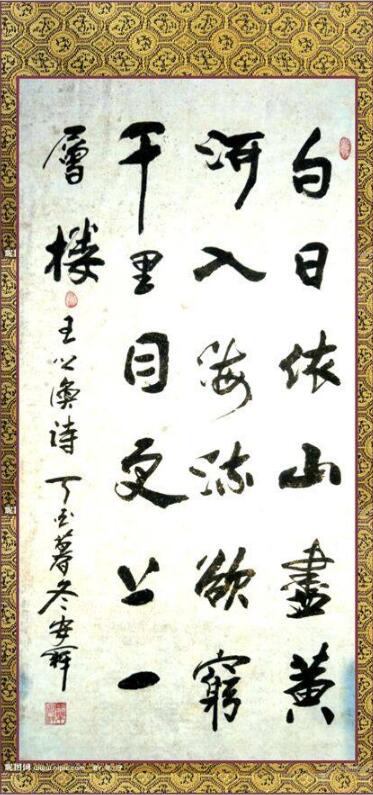 白日依山盡黄
河入海流欲窮
千里目更上一
層楼
王之渙詩 丁 暮冬
昵图网 www.nipic.com